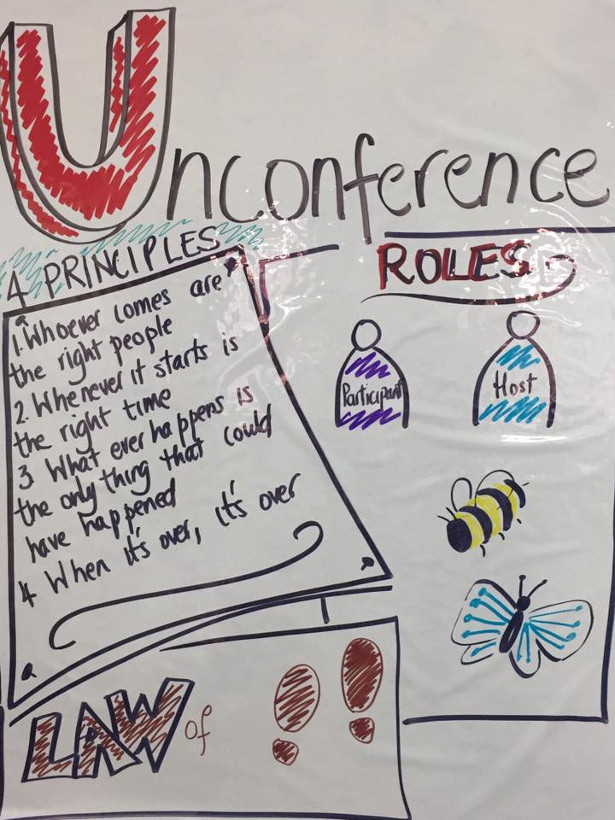 Unconference
4 PRINCIPLES
1. Whoever comes are
the right people
2. Whenever it starts is
the right time
3 What ever happens is
the only thing that could
have happened
4 When it's over, it's over
ROLES
Participant
Host
LAW of